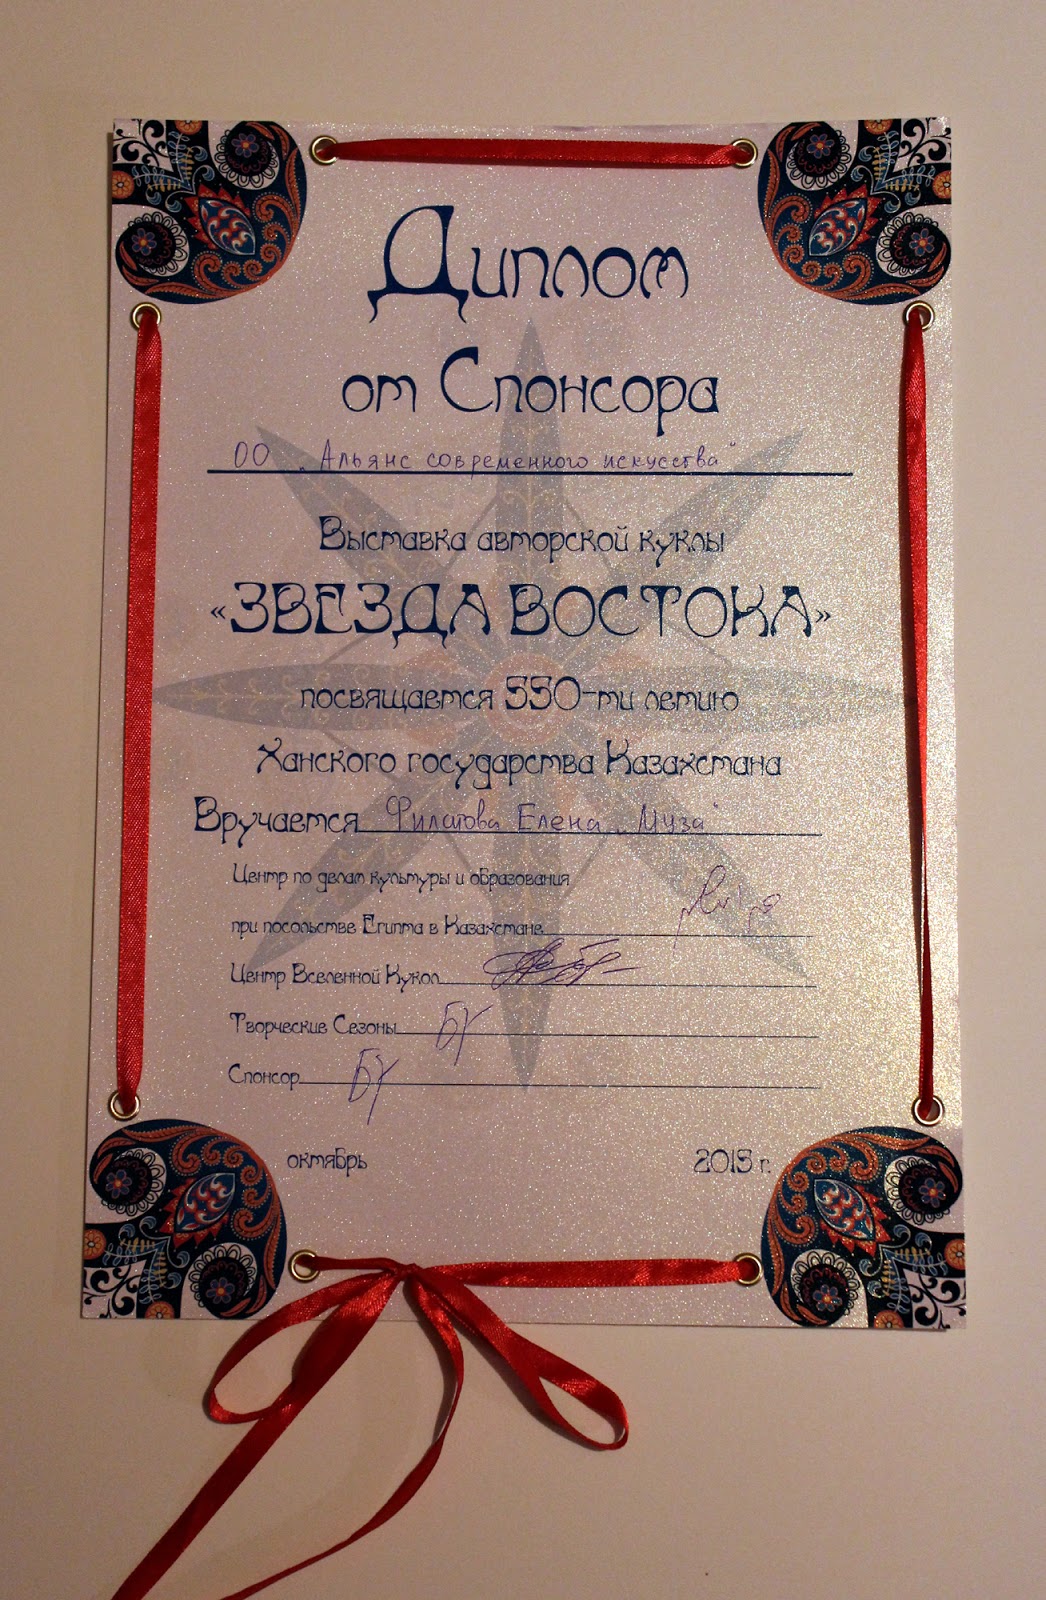 Диплом
от Спонсора
ОО „Альянс современного искусства"
Выставка авторской куклы
«ЗВЕЗДА ВОСТОКА»
посвящается 550-ти летию
Ханского государства Казахстана
Вручается Филатова Елена „Муза"
Центр по делам культуры и образования
при посольстве Египта в Казахстане
Центр Вселенной Кукол
Творческие Сезоны
Спонсор
октябрь 2015 г.